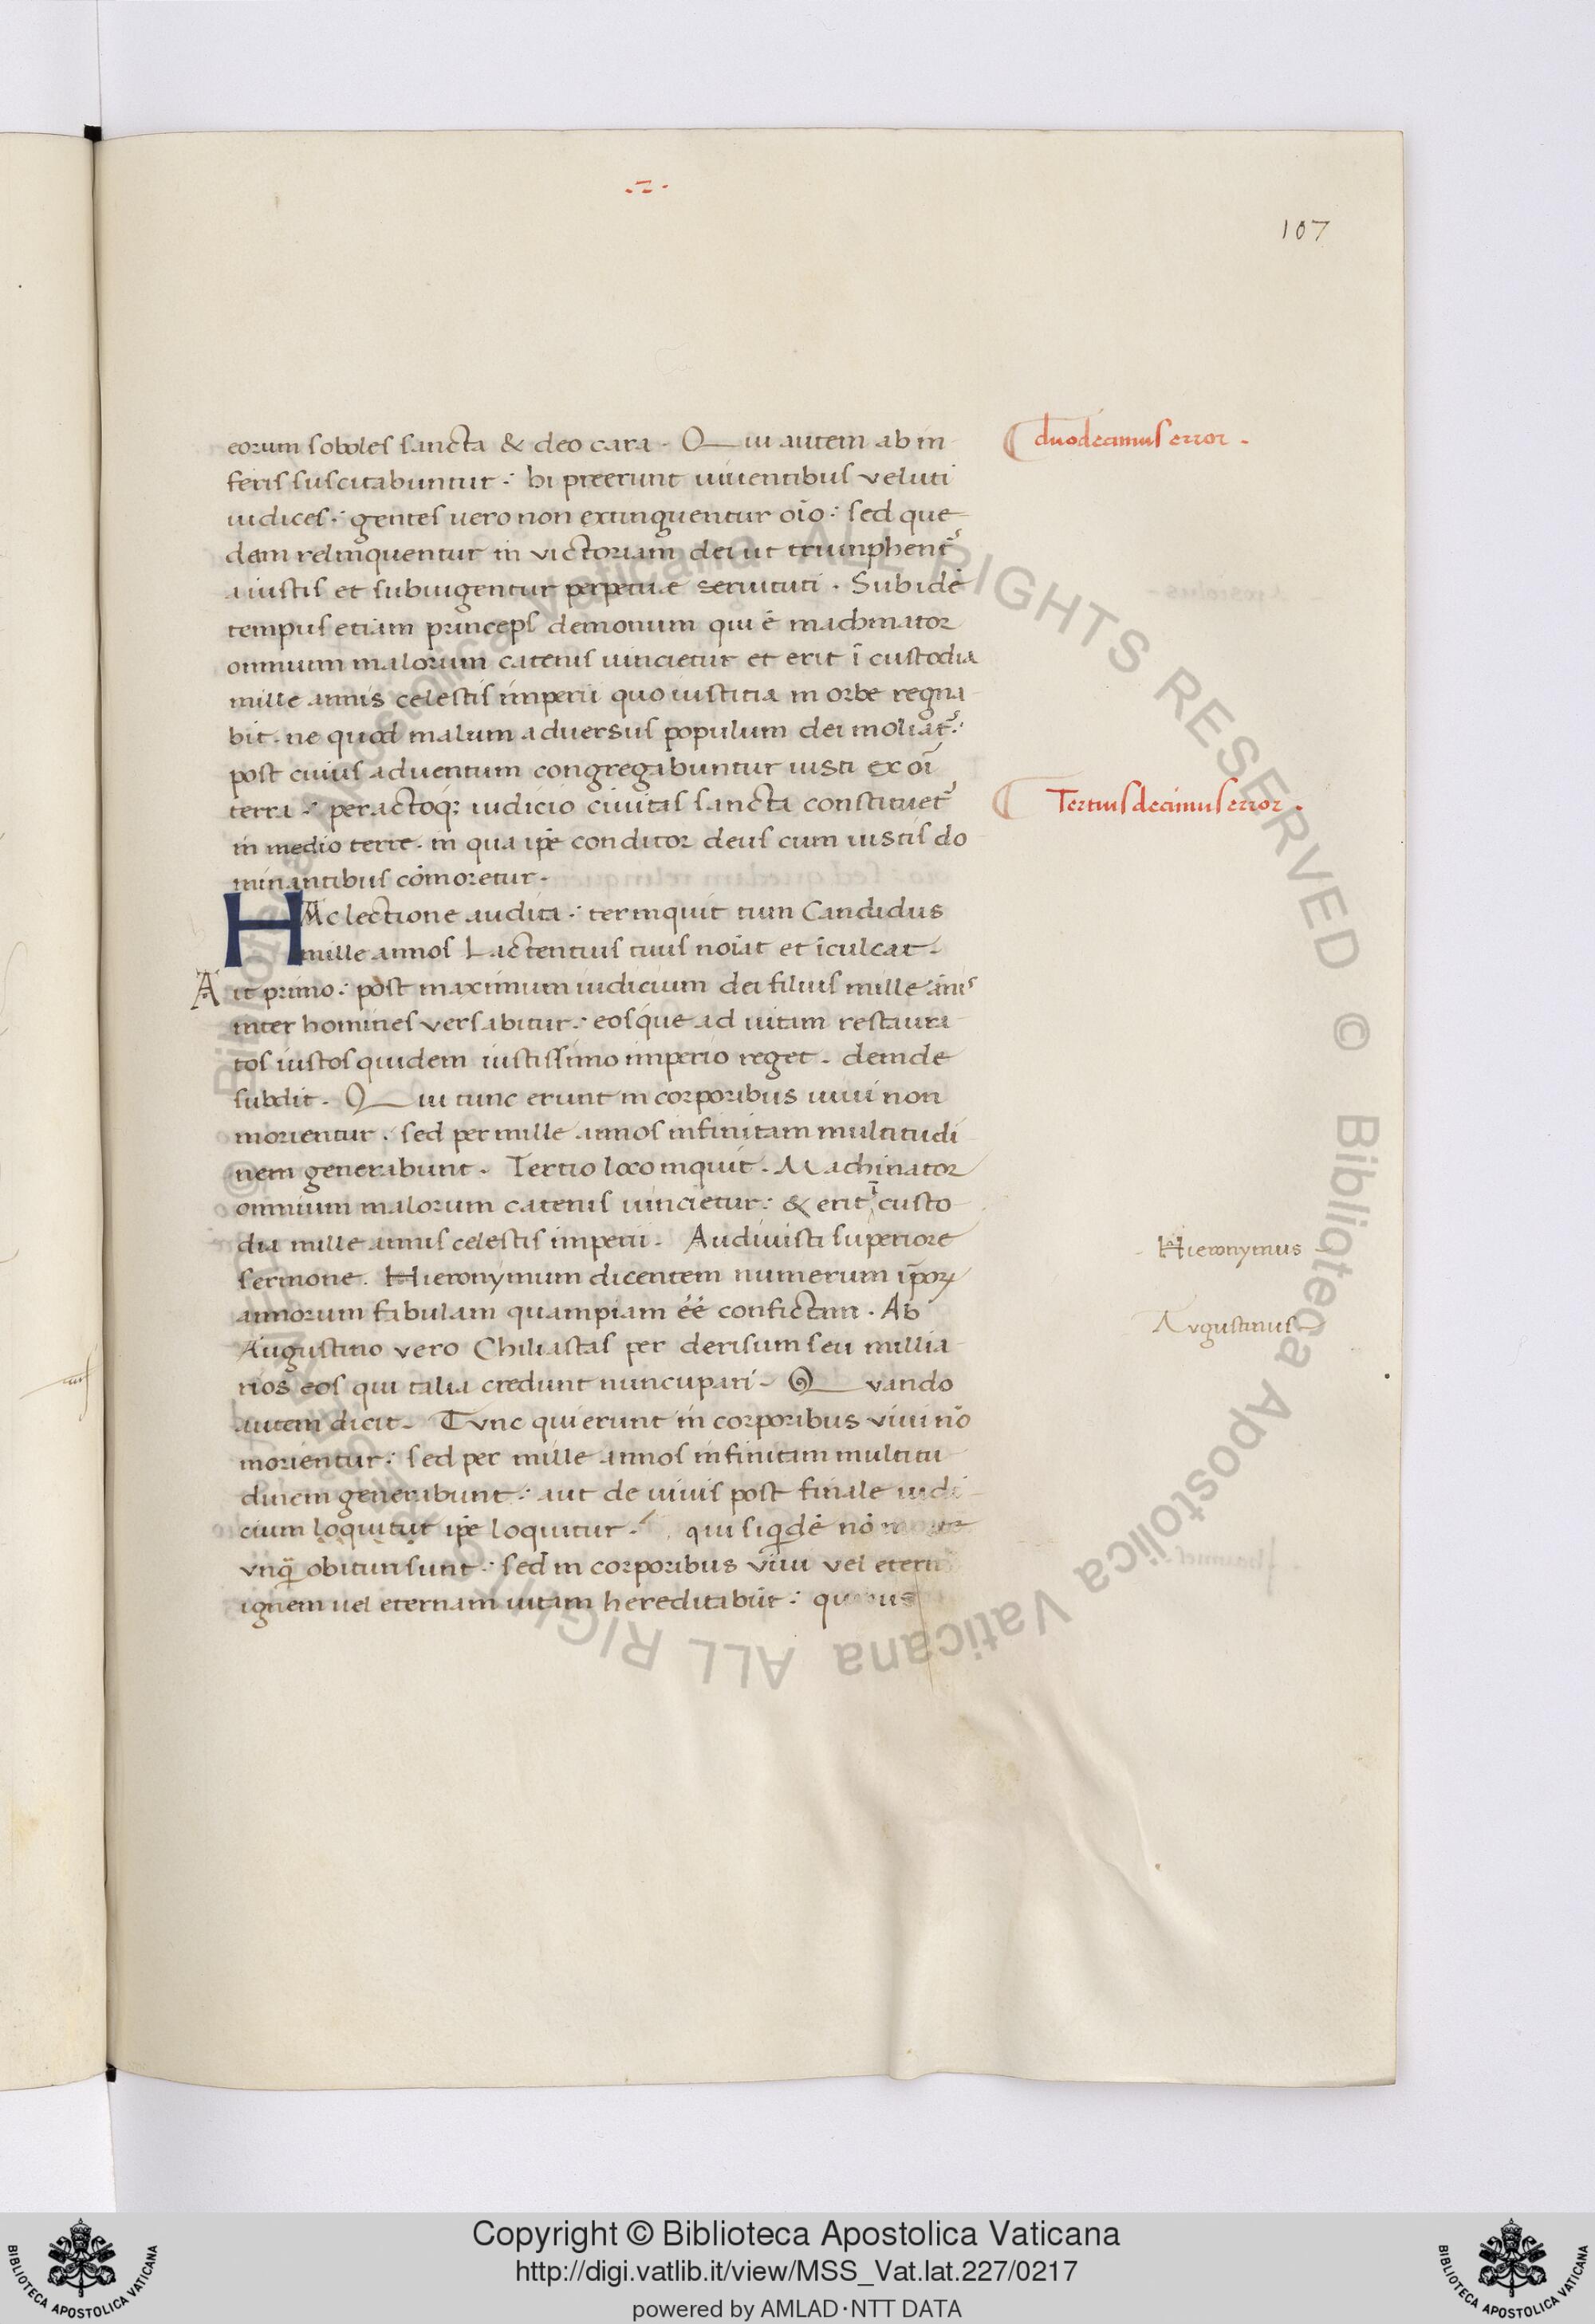 107
eorum soboles sancta & deo cara. Qui autem ab in
feris suscitabuntur: hi preerunt uiuentibus veluti
iudices: gentes uero non extinguentur oĩo: sed que
dam relinquentur in victoriam dei ut triumphent᷑
a iustis et subiugentur perpetuae seruituti. Sub idē
tempus etiam princeps demonum qui ē machinator
omnium malorum catenis uincietur et erit ĩ custodia
mille annis celestis imperii quo iustitia in orbe regna
bit. ne quod malum aduersus populum dei moliat᷑:
post cuius aduentum congregabuntur iusti ex oĩ
terra: peractoq; iudicio ciuitas sancta constituet᷑
in medio terre. in qua ip̄e conditor deus cum iustis do
minantibus cōmoretur.
HAc lectione audita: ter inquit tum Candidus
mille annos Lactentius tuus noĩat et ĩculcat.
Ait primo: post maximum iudicium dei filius mille ānis
inter homines versabitur: eosque ad uitam restaura
tos iustos quidem iustissimo imperio reget. deinde
subdit. Qui tunc erunt in corporibus uiui non
morientur. sed per mille annos infinitam multitudi
nem generabunt. Tertio loco inquit. Machinator
omnium malorum catenis uincietur: & erit ĩ custo
dia mille annis celestis imperii. Audiuisti superiore
sermone. Hieronymum dicentem numerum ip̄oꝝ
annorum fabulam quampiam éé confictam. Ab
Augustino vero Chiliastas per derisum seu millia
rios eos qui talia credunt nuncupari. Quando
autem dicit. Tvnc qui erunt in corporibus viui nō
morientur: sed per mille annos infinitam multitu
dinem generabunt: aut de uiuis post finale iudi
cium loquitur ip̄e loquitur. qui siqdē nō
vnq̄ obituri sunt: sed in corporibus viui vel eternū
ignem uel eternam uitam hereditabūt: quibus
duodecimus error.
Tertiusdecimus error.
Hieronymus
Avgustinus
© Biblioteca Apostolica Vaticana ALL RIGHTS RESERVED © Biblioteca Apostolica Vaticana ALL RIGHTS RESERVED
Copyright © Biblioteca Apostolica Vaticana
http://digi.vatlib.it/view/MSS_Vat.lat.227/0217
powered by AMLAD・NTT DATA
BIBLIOTECA APOSTOLICA VATICANA
BIBLIOTECA APOSTOLICA VATICANA